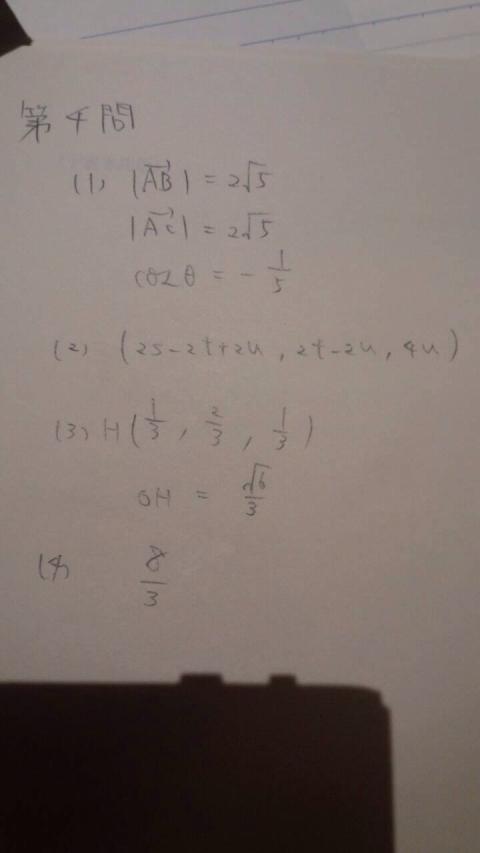 第4問
(1) |AB→| = 2√5
|AC→| = 2√5
cosθ = - 1/5
(2) (2s-2t+2u, 2t-2u, 4u)
(3) H(1/3, 2/3, 1/3)
OH = √6/3
(4) 8/3